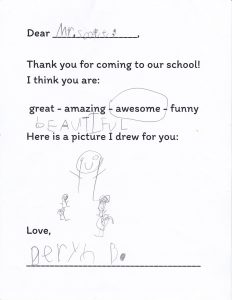 Dear Mr.
Thank you for coming to our school!
I think you are:
great - amazing - awesome - funny
bEAUTIFUL
Here is a picture I drew for you:
Love,
Deryn B.